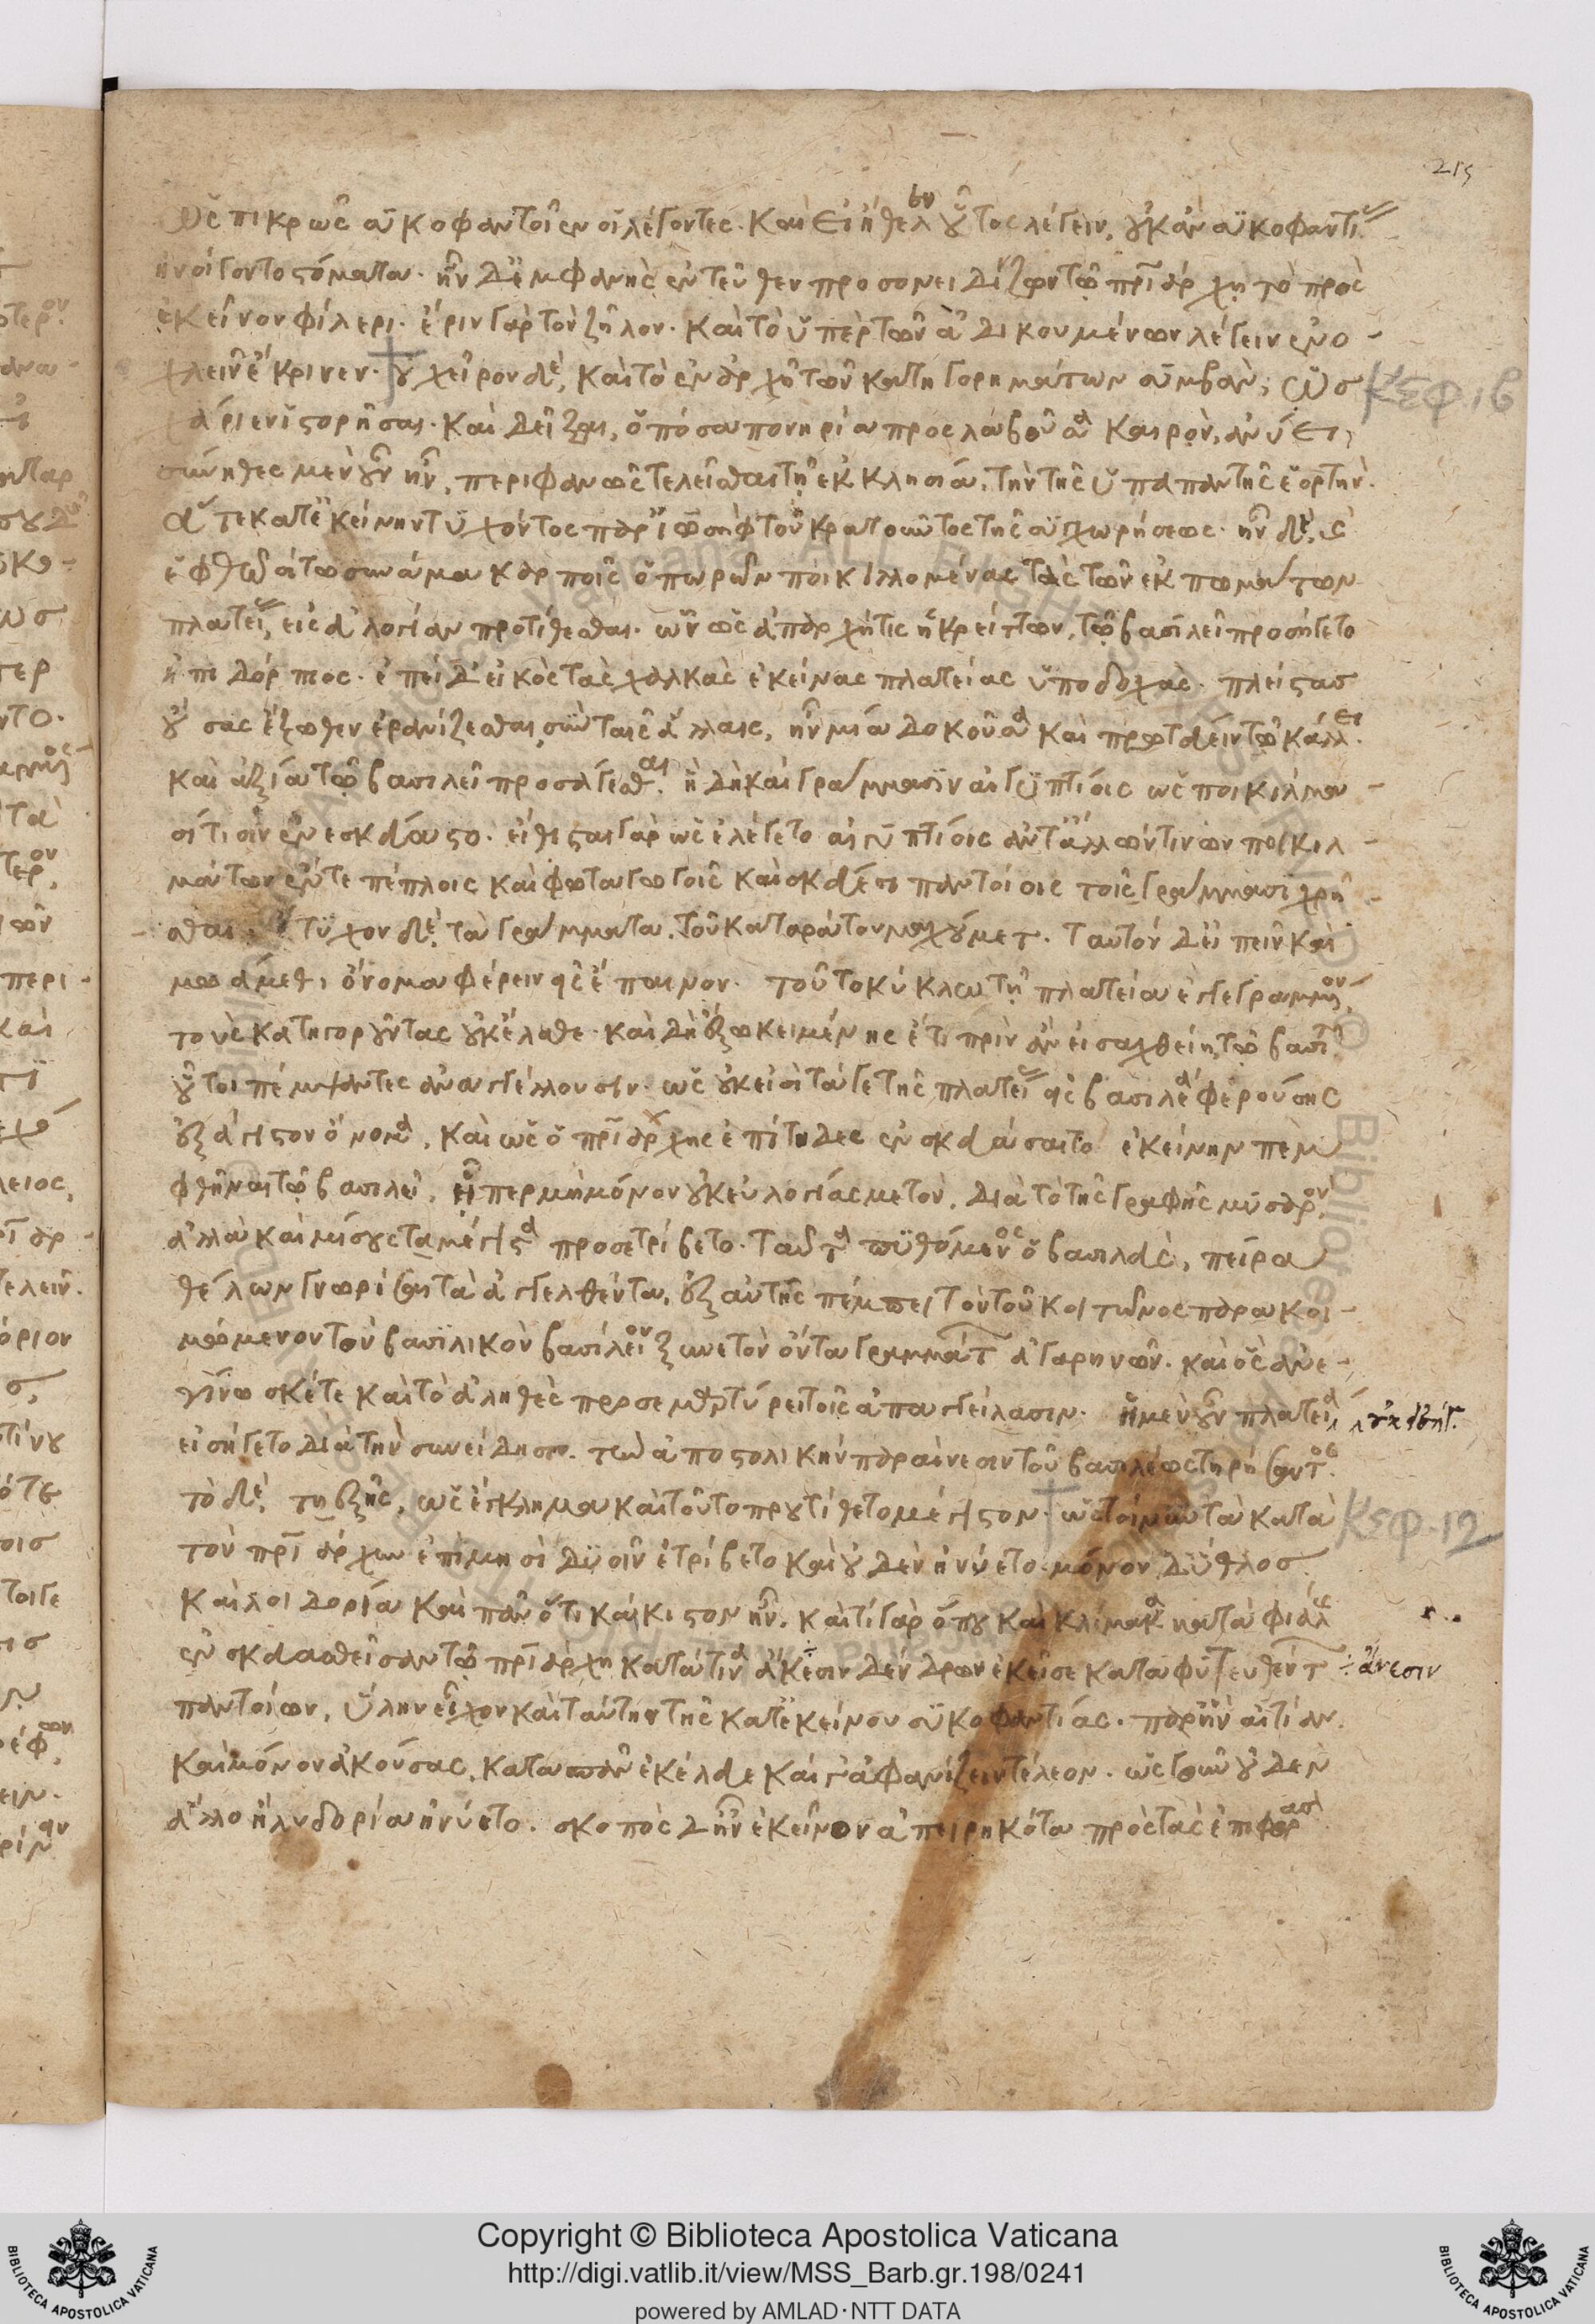 215
ὡς πικρῶς συκοφαντοῖεν οἱ λέγοντες. καὶ εἰ ἤθελεν οὗτος λέγειν, οὐκ ἂν συκοφαντίας
ἠνοίγοντο στόματα. ἦν δ' ἐμφανὴς ἐντεῦθεν προσονειδίζων τῷ πατριάρχῃ τὸ πρὸς
ἐκεῖνον φίλερι. ἔριν γὰρ τὸν ζῆλον. καὶ τὸ ὑπὲρ τῶν ἀδικουμένων λέγειν ἐνο-
χλεῖν ἔκρινεν. οὐ χεῖρον δὲ, καὶ τὸ ἐν ἀρχῇ τῶν κατηγορημάτων συμβὰν, ὡς
χάριεν ἱστορῆσαι. καὶ δεῖξαι, ὁπόσα πονηρία προσλαβοῦσα καιρὸν, ἀνύει,
σύνηθες μὲν οὖν ἦν, περιφανῶς τελεῖσθαι τῇ ἐκκλησίᾳ, τὴν τῆς ὑπαπαντῆς ἑορτήν.
ἅτε κατ' ἐκείνην τυχόντος παρὰ Ἰωσὴφ τοῦ κρατοῦντος τῆς συγχωρήσεως. ἦν δὲ, καὶ
ἑφθῷ σίτῳ συνάμα καρποῖς ὀπωρῶν ποικιλλομένας τὰς τῶν ἐκπωμάτων
πλατείας, εἰς εὐλογίαν προτίθεσθαι. ὧν ὡς ἀπαρχή τις ἡ κρείττων, τῷ βασιλεῖ προσήγετο
ἐπεὶ δ' εἰκὸς τὰς χαλκᾶς ἐκείνας πλατείας ὑποδοχὰς. πλείστας
οὔσας ἔξωθεν ἐρανίζεσθαι, σὺν ταῖς ἄλλαις, ἦν μία δοκοῦσα καὶ πρωτεύειν τῷ κάλλει
καὶ ἀξία τῷ βασιλεῖ προσάγεσθαι. ἣ δὴ καὶ γράμμασιν αἰγυπτίοις ὡς ποίκιλμα
οἷτισιν ἐνεσκεύαστο. εἴθισται γὰρ ὡς ἐλέγετο αἰγυπτίοις ἀντ' ἄλλων τινῶν ποικιλ-
μάτων ἔν τε πέπλοις καὶ φωταγωγοῖς καὶ σκεύεσι παντοίοις τοῖς γράμμασι χρῆ-
σθαι. ἔτυχον δὲ, τὰ γράμματα, τοῦ καταράτου μαχούμετ. ταυτὸν δ' εἰπεῖν καὶ
μωάμεθ, ὄνομα φέρειν εἰς ἔπαινον. τοῦτο κύκλῳ τῇ πλατείᾳ ἐγγεγραμμένον,
τοὺς κατηγοροῦντας οὐκ ἔλαθε. καὶ δὴ ἔξω κειμένης ἔτι πρὶν ἂν εἰσαχθείη τῷ βασιλεῖ
οὗτοι πέμψαντες ἀναγγέλλουσιν. ὡς οὐκ εἰσιτά γε τῆς πλατείας εἰς βασιλέα φερούσης
ἐξάγιστον ὄνομα, καὶ ὡς ὁ πατριάρχης ἐπίτηδες ἐνσκευάσαιτο ἐκείνην πεμ
φθῆναι τῷ βασιλεῖ, εἴπερ μὴ μόνον οὐκ εὐλογίας μετὸν, διὰ τὸ τῆς γραφῆς μυσαρὸν,
ἀλλὰ καὶ μύσους τὰ μέγιστα προσετρίβετο. ταῦτα πυθόμενος ὁ βασιλεὺς, πείρᾳ
θέλων γνωρίσαι τὰ ἀγγελθέντα, ἐξ αὐτῆς πέμπει τὸν τοῦ κοιτῶνος παρακοι-
μώμενον τὸν βασιλικὸν βασίλειον ξυνετὸν ὄντα γραμμάτων ἀγαρηνῶν. καὶ ὃς ἀνε-
γίνωσκέ τε καὶ τὸ ἀληθὲς προσεμαρτύρει τοῖς ἀπαγγείλασιν. ἡ μὲν οὖν πλατεῖα
οὐκ
εἰσήγετο διὰ τὴν συνείδησιν. τὴν ἀποστολικὴν παραίνεσιν τοῦ βασιλέως τηρήσαντος.
τὸ δὲ, τῆς ἑξῆς, ὡς ἔγκλημα καὶ τοῦτο προὐτίθετο μέγιστον. ὡς τοίνυν τὰ κατὰ
τὸν πατριάρχην ἐπὶ μησὶ δυσὶν ἐτρίβετο καὶ οὐδὲν ἠνύετο. μόνον δὲ ὕθλος
καὶ λοιδορία καὶ πᾶν ὅτι κάκιστον ἦν. καὶ τί γὰρ ὅπου καὶ κλίμακα κατὰ φιάλης
ἐνσκευασθεῖσαν τῷ πατριάρχῃ κατά τινα ἄκεσιν δένδρων ἐκεῖσε καταφυτευθέντων
÷ ἄνεσιν
παντοίων, ὕλην εἶχον καὶ ταύτην τῆς κατ' ἐκείνου συκοφαντίας. παρ' ἣν αἰτίαν
καὶ μόνον ἀκούσας, κατασπᾶν ἐκέλευε καὶ ἀφανίζειν τέλεον. ὡς γοῦν οὐδὲν
ἄλλο ἢ λοιδορία ἠνύετο. σκοπὸς δ' ἦν ἐκεῖνον ἀπειρηκότα πρὸς τὰς ἐπιφοράς
κεφ. ιβ
κεφ. ιγ
Copyright © Biblioteca Apostolica Vaticana
http://digi.vatlib.it/view/MSS_Barb.gr.198/0241
powered by AMLAD·NTT DATA
BIBLIOTECA APOSTOLICA VATICANA
BIBLIOTECA APOSTOLICA VATICANA